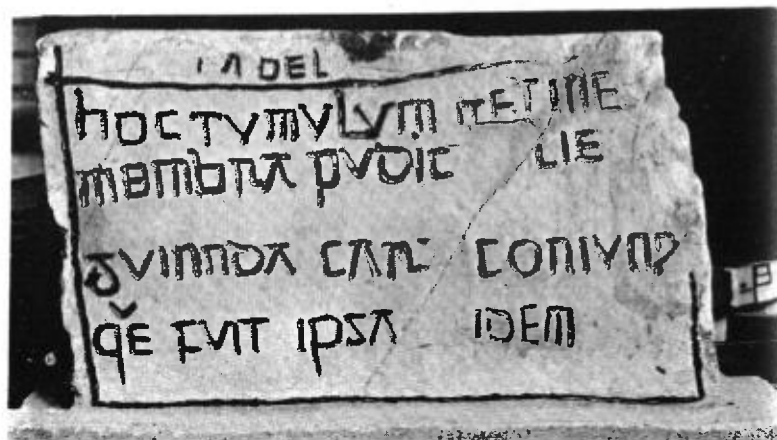 IADEL
hOCTVMVLVM RETINE
MEMbRA PVDIC LIE
QVINNDA CARE CONIVNX
QE FVIT IPSA IDEM